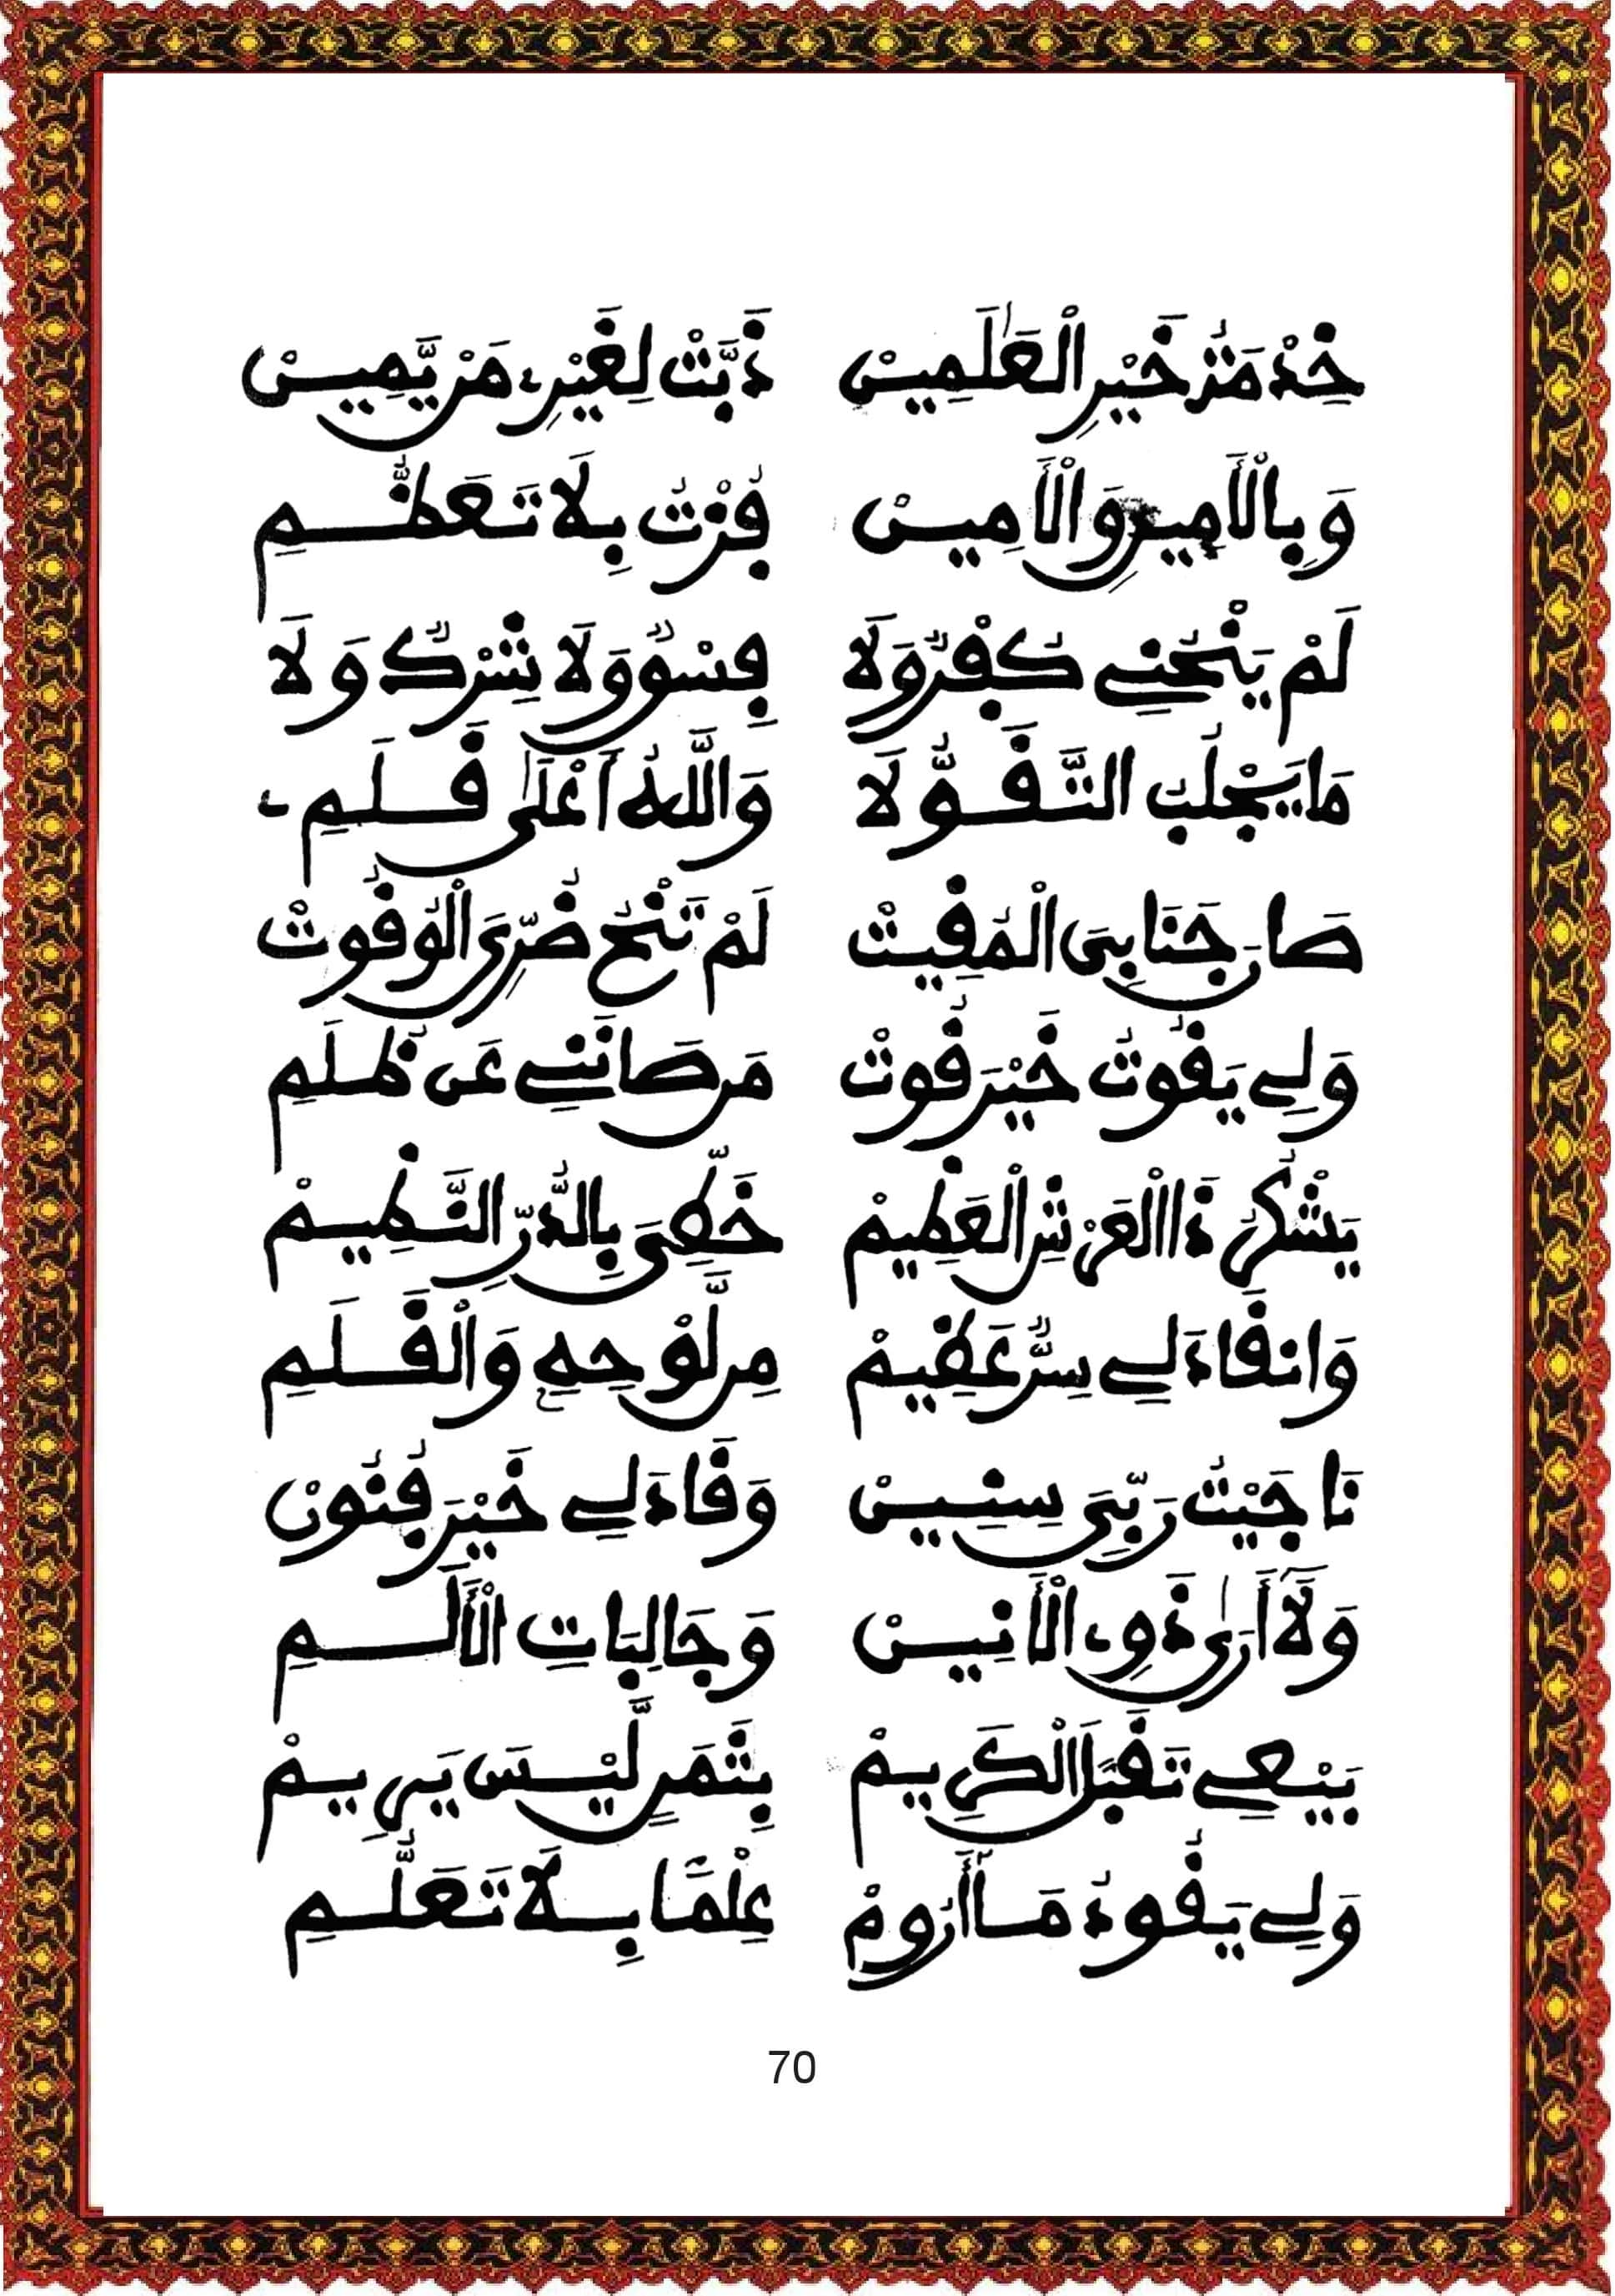 خِدْمَتُ خَيْرِ الْعَٰلَمِينْ ذَبَّتْ لِغَيْرِے مَنْ يَّمِينْ
وَبِالْأَمِيرِ وَالْأَمِينْ فُزْتُ بِلَا تَعَظُّمِ
لَمْ يَنْحُنِے كُفْرٌ وَلَا فِسْقٌ وَلَا شِرْكٌ وَلَا
مَا يَجْلُبُ التَّقَوُّلَا وَاللَّهُ أَعْلَىٰ قَلَمِے
صَارَ جَنَابِىَ الْمُقِيتْ لَمْ تَنْحُ ضُرِّىَ الْوُقُوتْ
وَلِے يَقُوتُ خَيْرَ قُوتْ مَن صَانَنِے عَن ظُلَمِ
يَشْكُرُ ذَا الْعَرْشِ الْعَظِيمْ خَطِّىَ بِالدُّرِّ النَّظِيمْ
وَانقَادَ لِے سِرٌّ عَقِيمْ مِن لَّوْحِهِ وَالْقَلَمِ
نَاجَيْتُ رَبِّىَ سِنِينْ وَقَادَ لِے خَيْرَ فُنُونْ
وَلَآ أَرَىٰ ذَوِے الْأَنِينْ وَجَالِبَاتِ الْأَلَمِ
بَيْعِے تَقَبَّلَ الْكَرِيمْ بِثَمَنٍ لَّيْسَ يَرِيمْ
وَلِے يَقُودُ مَا أَرُومْ عِلْمًا بِلَا تَعَلُّمِ
70